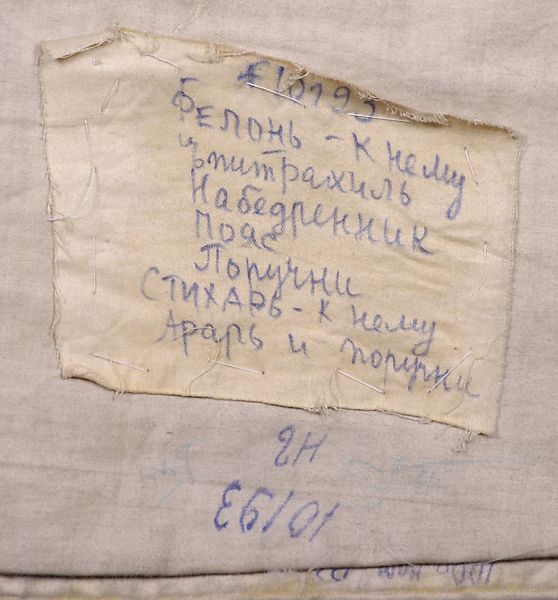 £10193
БЕЛОНЬ - К нему
ипитрахиль
Набедренник
Пояс
Поручни
СТИХАРЬ - К нему
Арарь и поручни
ЧН
10/93